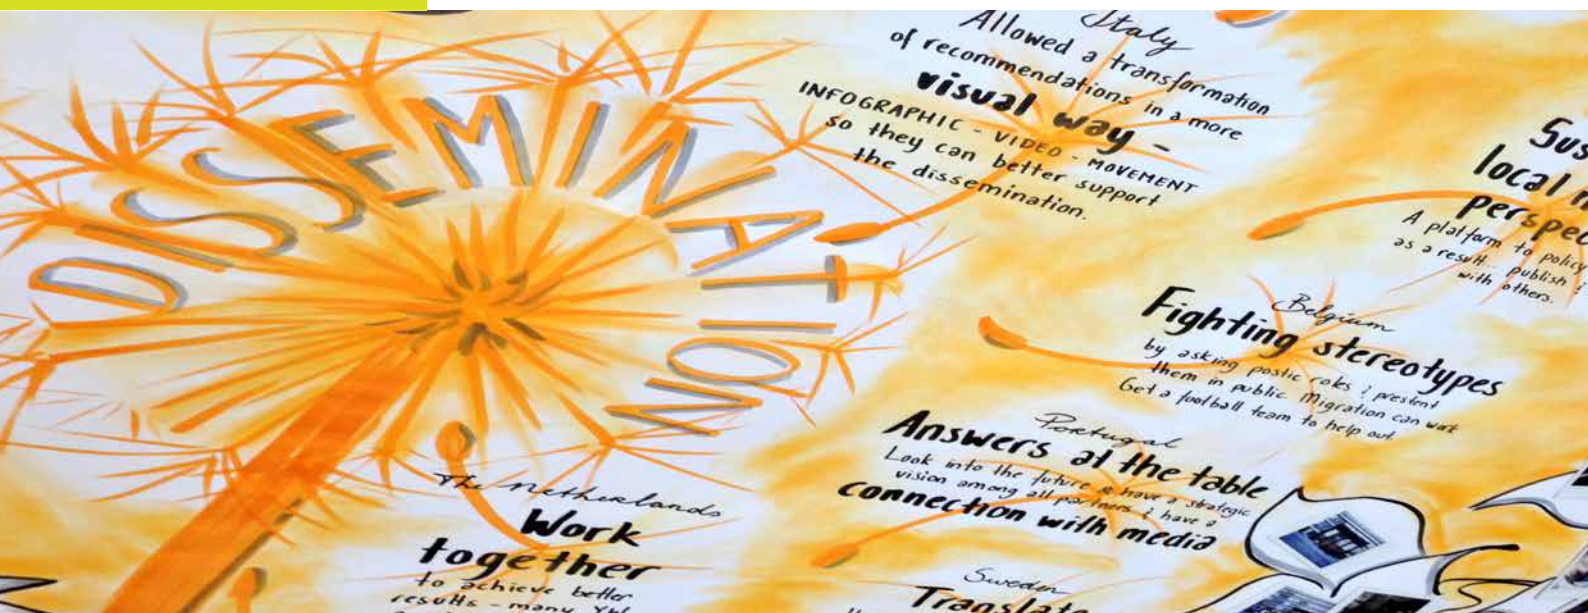 DISSEMINATION
Italy
Allowed a transformation
of recommendations in a more
visual way -
INFOGRAPHIC - VIDEO - MOVEMENT
so they can better support
the dissemination.
local
A platform to policy
as a result... publish &
with others.
Belgium
Fighting stereotypes
by asking postic roks & prestent
them in public Migration can work
Get a football team to help out
Portugal
Answers at the table
Look into the future & have a strategic
vision among all partners & have a
connection with media
The Netherlands
Work
together
to achieve better
results - many
Sweden
Translate